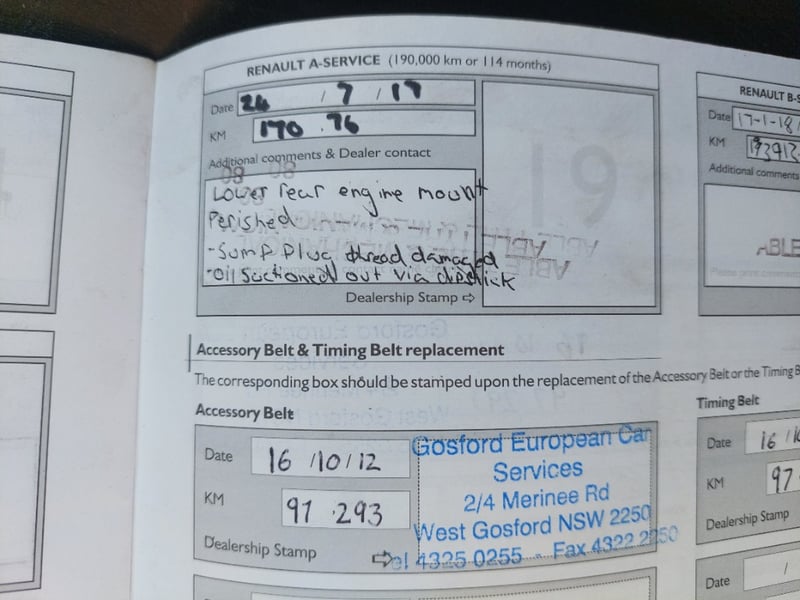 RENAULT A-SERVICE (190,000 km or 114 months)
Date 24 / 7 / 17
KM 170.76
Additional comments & Dealer contact
Lower rear engine mount
Perished
-Sump Plug thread damaged
-Oil Suctioned out via dipstick
Dealership Stamp ⇨
19
Accessory Belt & Timing Belt replacement
The corresponding box should be stamped upon the replacement of the Accessory Belt or the Timing B
Accessory Belt
Date 16 / 10 / 12
KM 97.293
Dealership Stamp ⇨
Gosford European Car
Services
2/4 Merinee Rd
West Gosford NSW 2250
Tel 4325 0255 - Fax 4322 2250
RENAULT B-S
Date 17-1-18
KM
Additional comments
ABLE
Timing Belt
Date 16 / 10
KM 97
Dealership Stamp
Date /